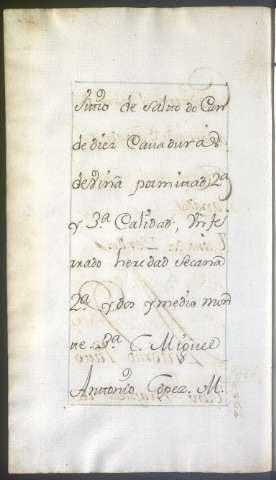 Sittio de Salto do Can
de diez Cavaduras
de viña por mitad, 2ª
y 3ª Calidad, un fe
rrado heredad secana
2ª y dos y medio mon
te 3ª C. Miguel
Antonio Lopez. M.